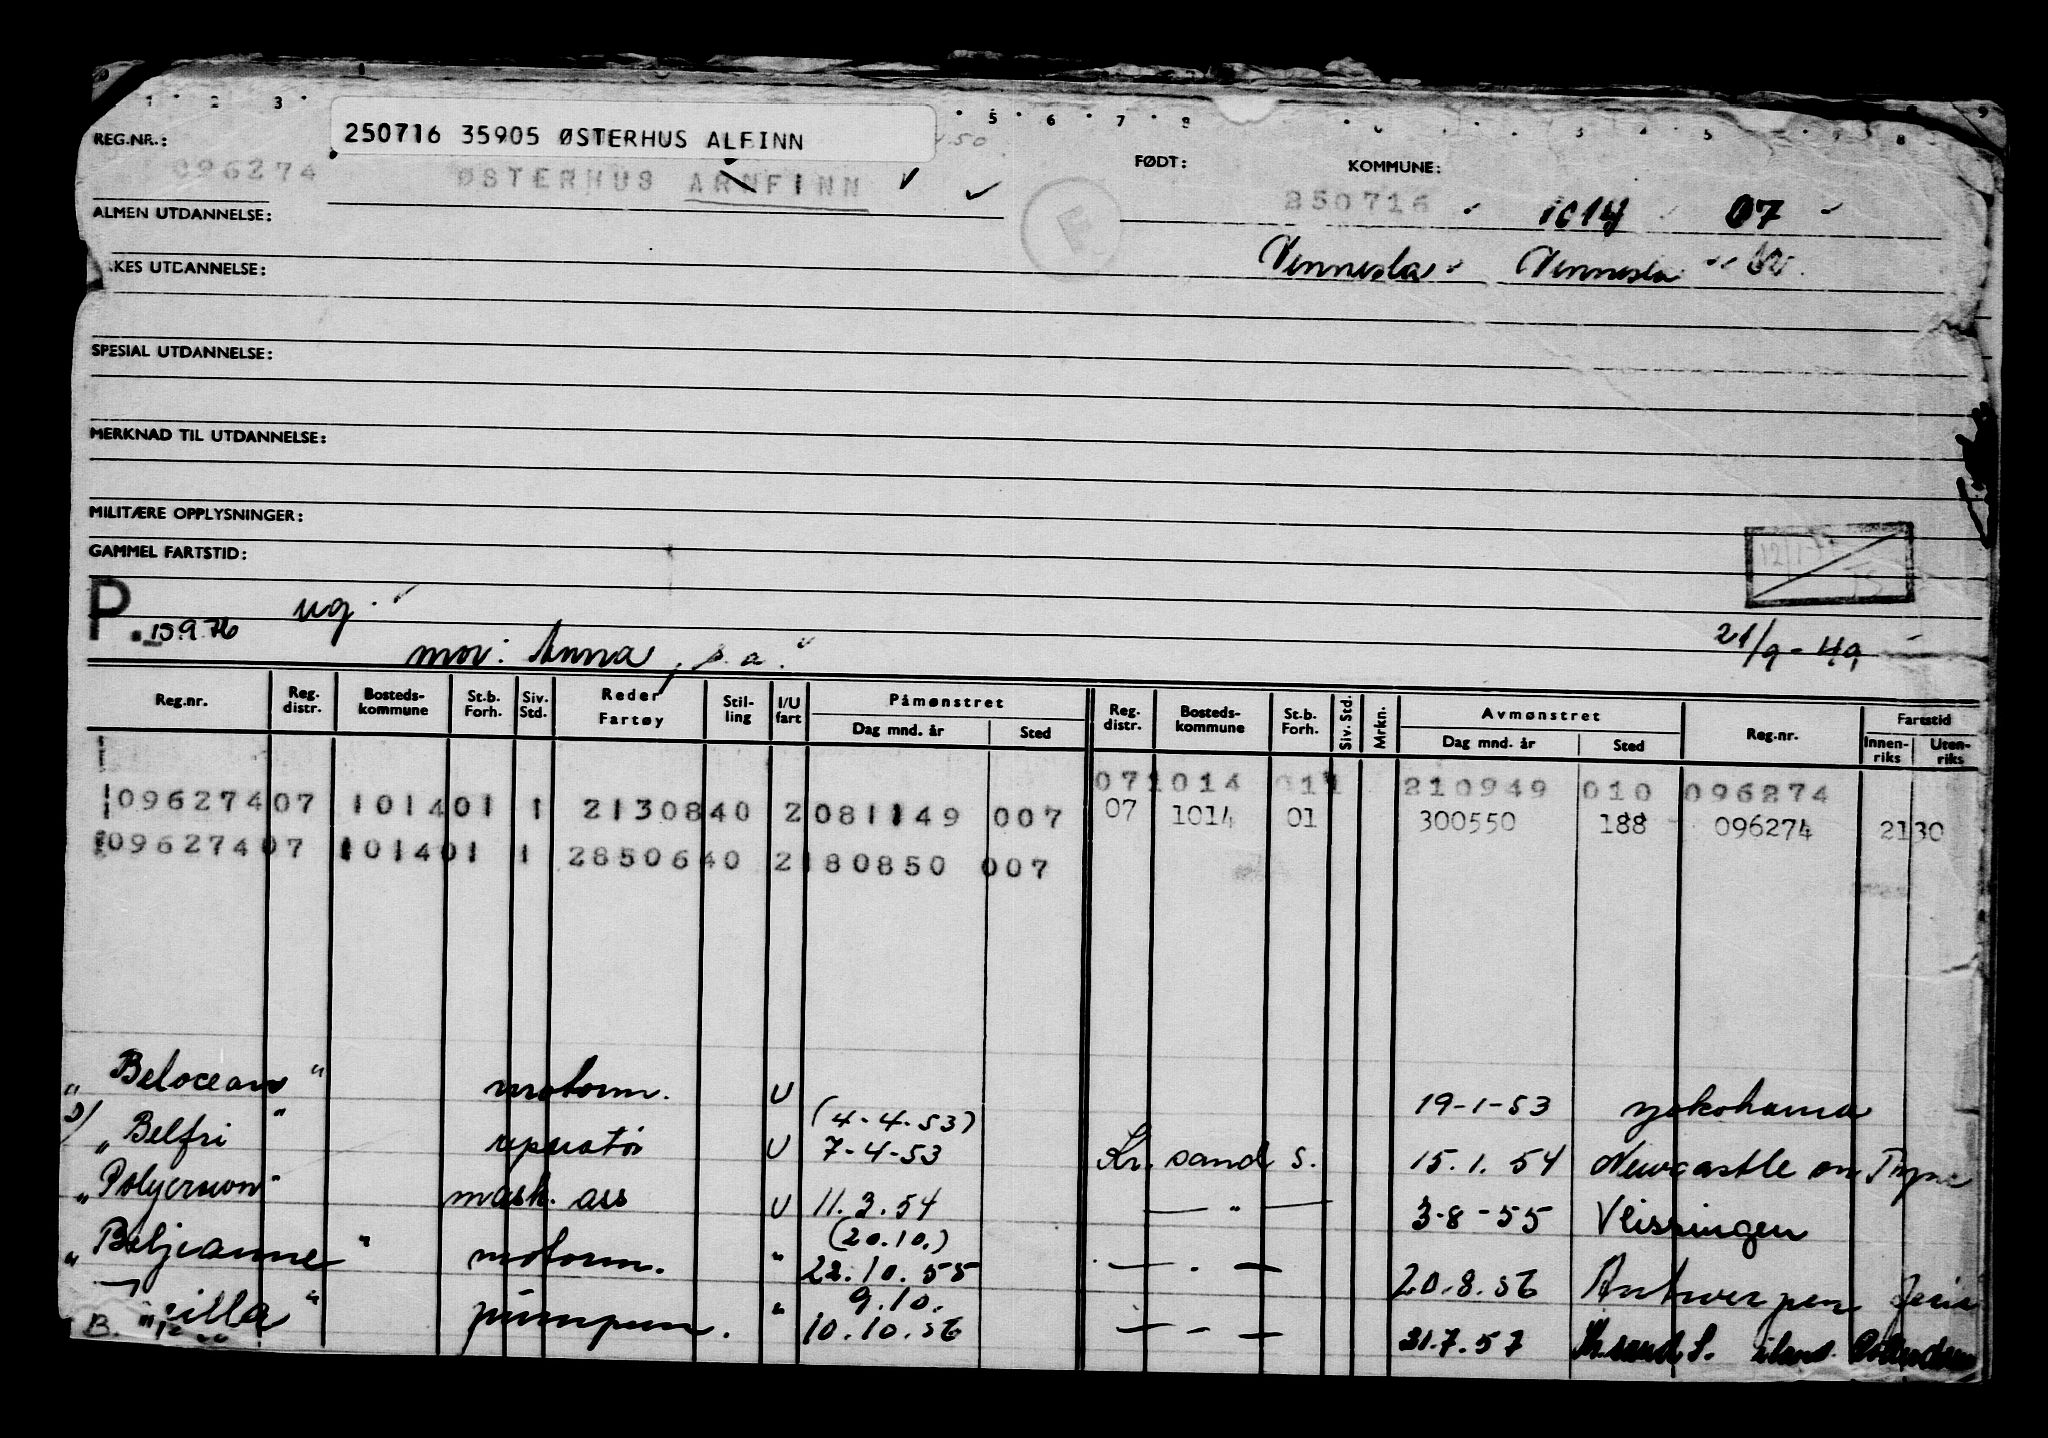 1 2 3 5 6 7 8 3 4 5 7 8 9
REG.NR.: 250716 35905 ØSTERHUS ALFINN FØDT: KOMMUNE:
096274 ØSTERHUS ARNFINN 250716 1014 07
ALMEN UTDANNELSE:
Vennesla Vennesla
KES UTDANNELSE:
SPESIAL UTDANNELSE:
MERKNAD TIL UTDANNELSE:
MILITÆRE OPPLYSNINGER:
GAMMEL FARTSTID:
P. 15.9.76 ug. 21/9-49
mor: Anna, s.a.
Reg.nr. Reg. distr. Bosteds-kommune St.b. Forh. Siv. Std. Reder Fartøy Stil-ling I/U fart Påmønstret Dag mnd. år Sted Reg. distr. Bosteds-kommune St.b. Forh. Siv. Std. Mrkn. Avmønstret Dag mnd. år Sted Reg.nr. Fartstid Innen-riks Uten-riks
071014 011 210949 010 096274
109627407 101401 1 2130840 2081149 007 07 1014 01 300550 188 096274 2130
109627407 101401 1 2850640 2180850 007
"Belocean" motorm. U 19-1-53 Yokohama
2/ "Belfri" reparatør U (4-4-53) 7-4-53 Kr. sand S. 15.1.54 Newcastle on Tyne
"Polycrown" mask. ass U 11.3.54 — " — 3-8-55 Vlissingen
"Beljeanne" motorm. " (20.10.) 22.10.55 — " — 20.8.56 Antwerpen
illa" pumpem. " 9.10. 10.10.56 — " — 31.7.57 Kr.sand S.
B.